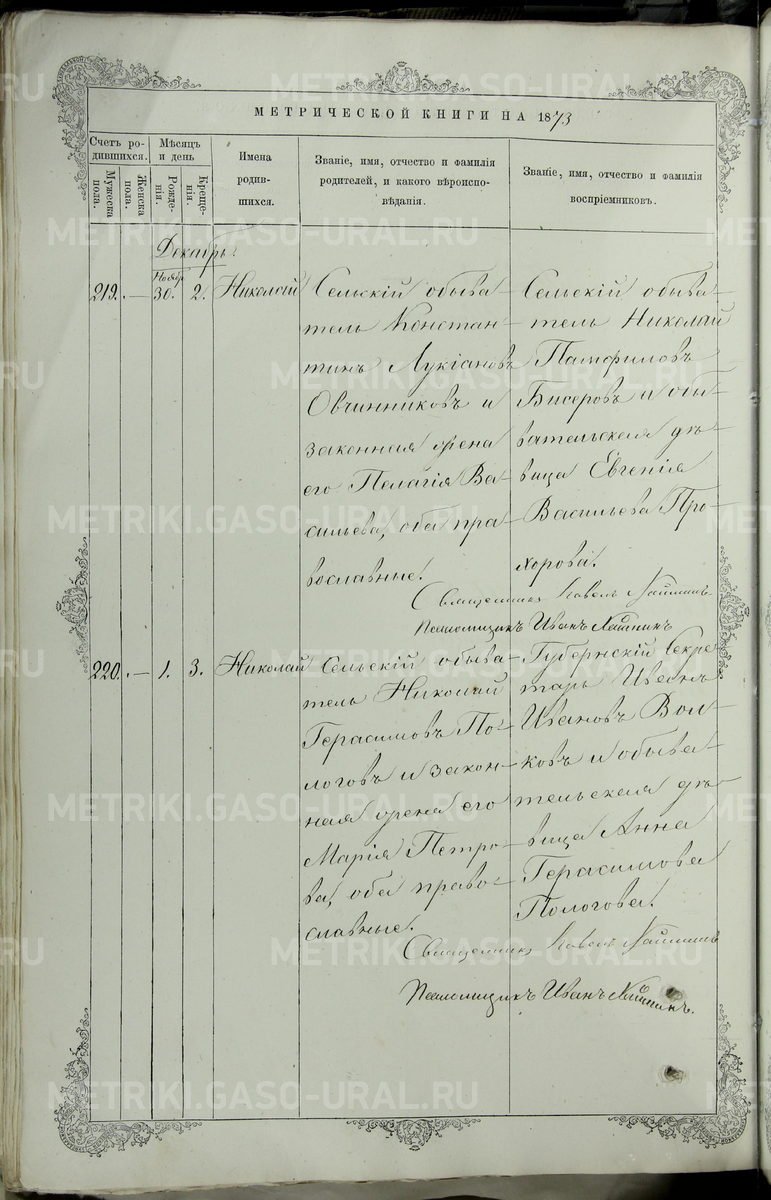 МЕТРИЧЕСКОЙ КНИГИ НА 1873
Счетъ ро-
дившихся.
Мужеска
пола.
Женска
пола.
Мѣсяцъ
и день
Рожде-
нія.
Креще-
нія.
Имена
родив-
шихся.
Званіе, имя, отчество и фамилія
родителей, и какого вѣроиспо-
вѣданія.
Званіе, имя, отчество и фамилія
воспріемниковъ.
Декабрь.
219. — Ноябр. 30. 2. Николай
Сельскій обыва-
тель Констан-
тинъ Лукіановъ
Овчинниковъ и
законная жена
его Пелагія Ва-
сильева, оба пра-
вославные.
Сельскій обыва-
тель Николай
Памфиловъ
Бисеровъ и обы-
вательская дѣ-
вица Евгенія
Васильева Про-
хорова.
Священникъ Павелъ
Псаломщикъ Иванъ
220. — 1. 3. Николай
Сельскій обыва-
тель Николай
Герасимовъ По-
логовъ и закон-
ная жена его
Марія Петро-
ва, оба право-
славные.
Губернскій Секре-
тарь Иванъ
Ивановъ Вол-
ковъ и обыва-
тельская дѣ-
вица Анна
Герасимова
Пологова.
Священникъ Павелъ
Псаломщикъ Иванъ
METRIKI.GASO-URAL.RU